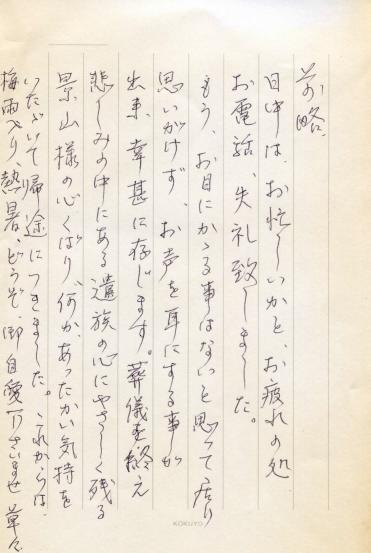 前略、
日中は、お忙しいかと、お疲れの処
お電話、失礼致しました。
もう、お目にかゝる事はないと思って居り
思いがけず、お声を耳にする事が
出来、幸甚に存じます。葬儀を終え
悲しみの中にある遺族の心にやさしく残る
景山様の心くばり、何か、あったかい気持を
いたゞいて帰途につきました。これからは、
梅雨入り、熱暑、どうぞ、御自愛下さいませ 草々
KOKUYO